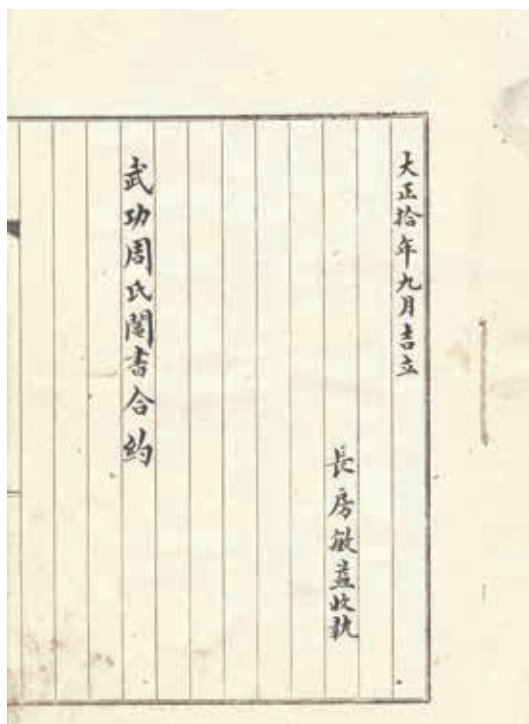 大正拾年九月吉立
長房敏益收執
武功周氏鬮書合約